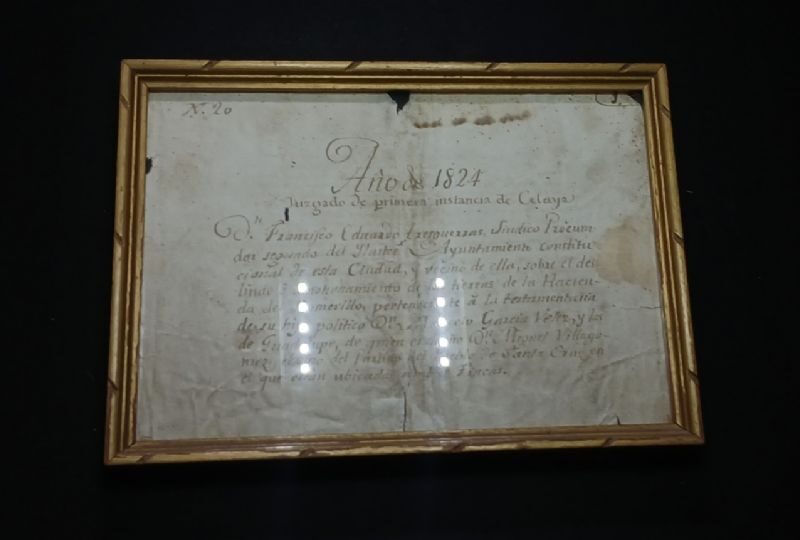 N. 20
Año de 1824
Juzgado de primera instancia de Celaya
D.n Francisco Eduardo Tresguerras, Sindico Procura
dor segundo del Ilustre Ayuntamiento constitu
cional de esta Ciudad, y vecino de ella, sobre el des
linde y amohonamiento de las tierras de la Hacien
da de perteneciente á la testamentaria
de su hijo politico D.n Garcia Velez, y la
de Guadalupe, de D.n Miguel Villago
mez, del Partido del de Santa Cruz en
el que estan ubicadas Fincas.